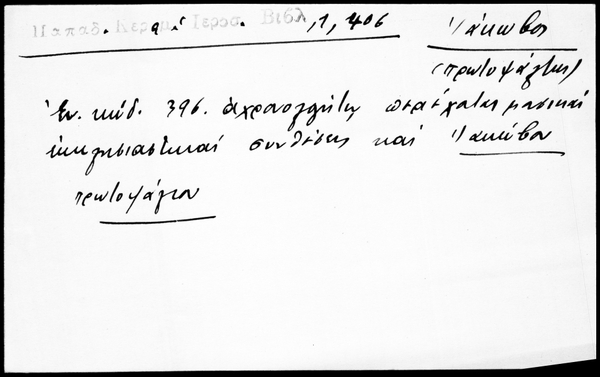 Παπαδ. Κεραμ. Ἱεροσ. Βιβλ. ,1, 406
Ἰάκωβος
(πρωτοψάλτης)
Ἐν κώδ. 396. ἀχρονολογήτῳ μουσικαὶ
ἐκκλησιαστικαί συνθέσεις καί Ἰακώβου
πρωτοψάλτου